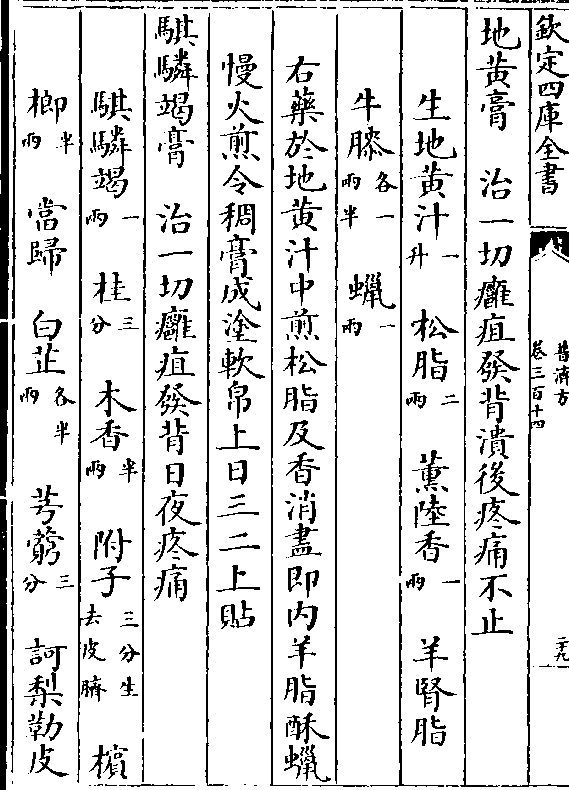 欽定四庫全書
普濟方
卷三百十四
二十九
地黄膏　治一切癰疽發背潰後疼痛不止
生地黄汁一升　松脂二兩　薫陸香一兩　羊腎脂
牛膝各一兩半　蠟一兩
右藥於地黄汁中煎松脂及香消盡即内羊脂酥蠟
慢火煎令稠膏成塗軟帛上日三二上貼
騏驎竭膏　治一切癰疽發背日夜疼痛
騏驎竭一兩　桂三分　木香半兩　附子三分生去皮臍　檳
榔半兩　當歸　白芷各半兩　芎藭三分　訶梨勒皮